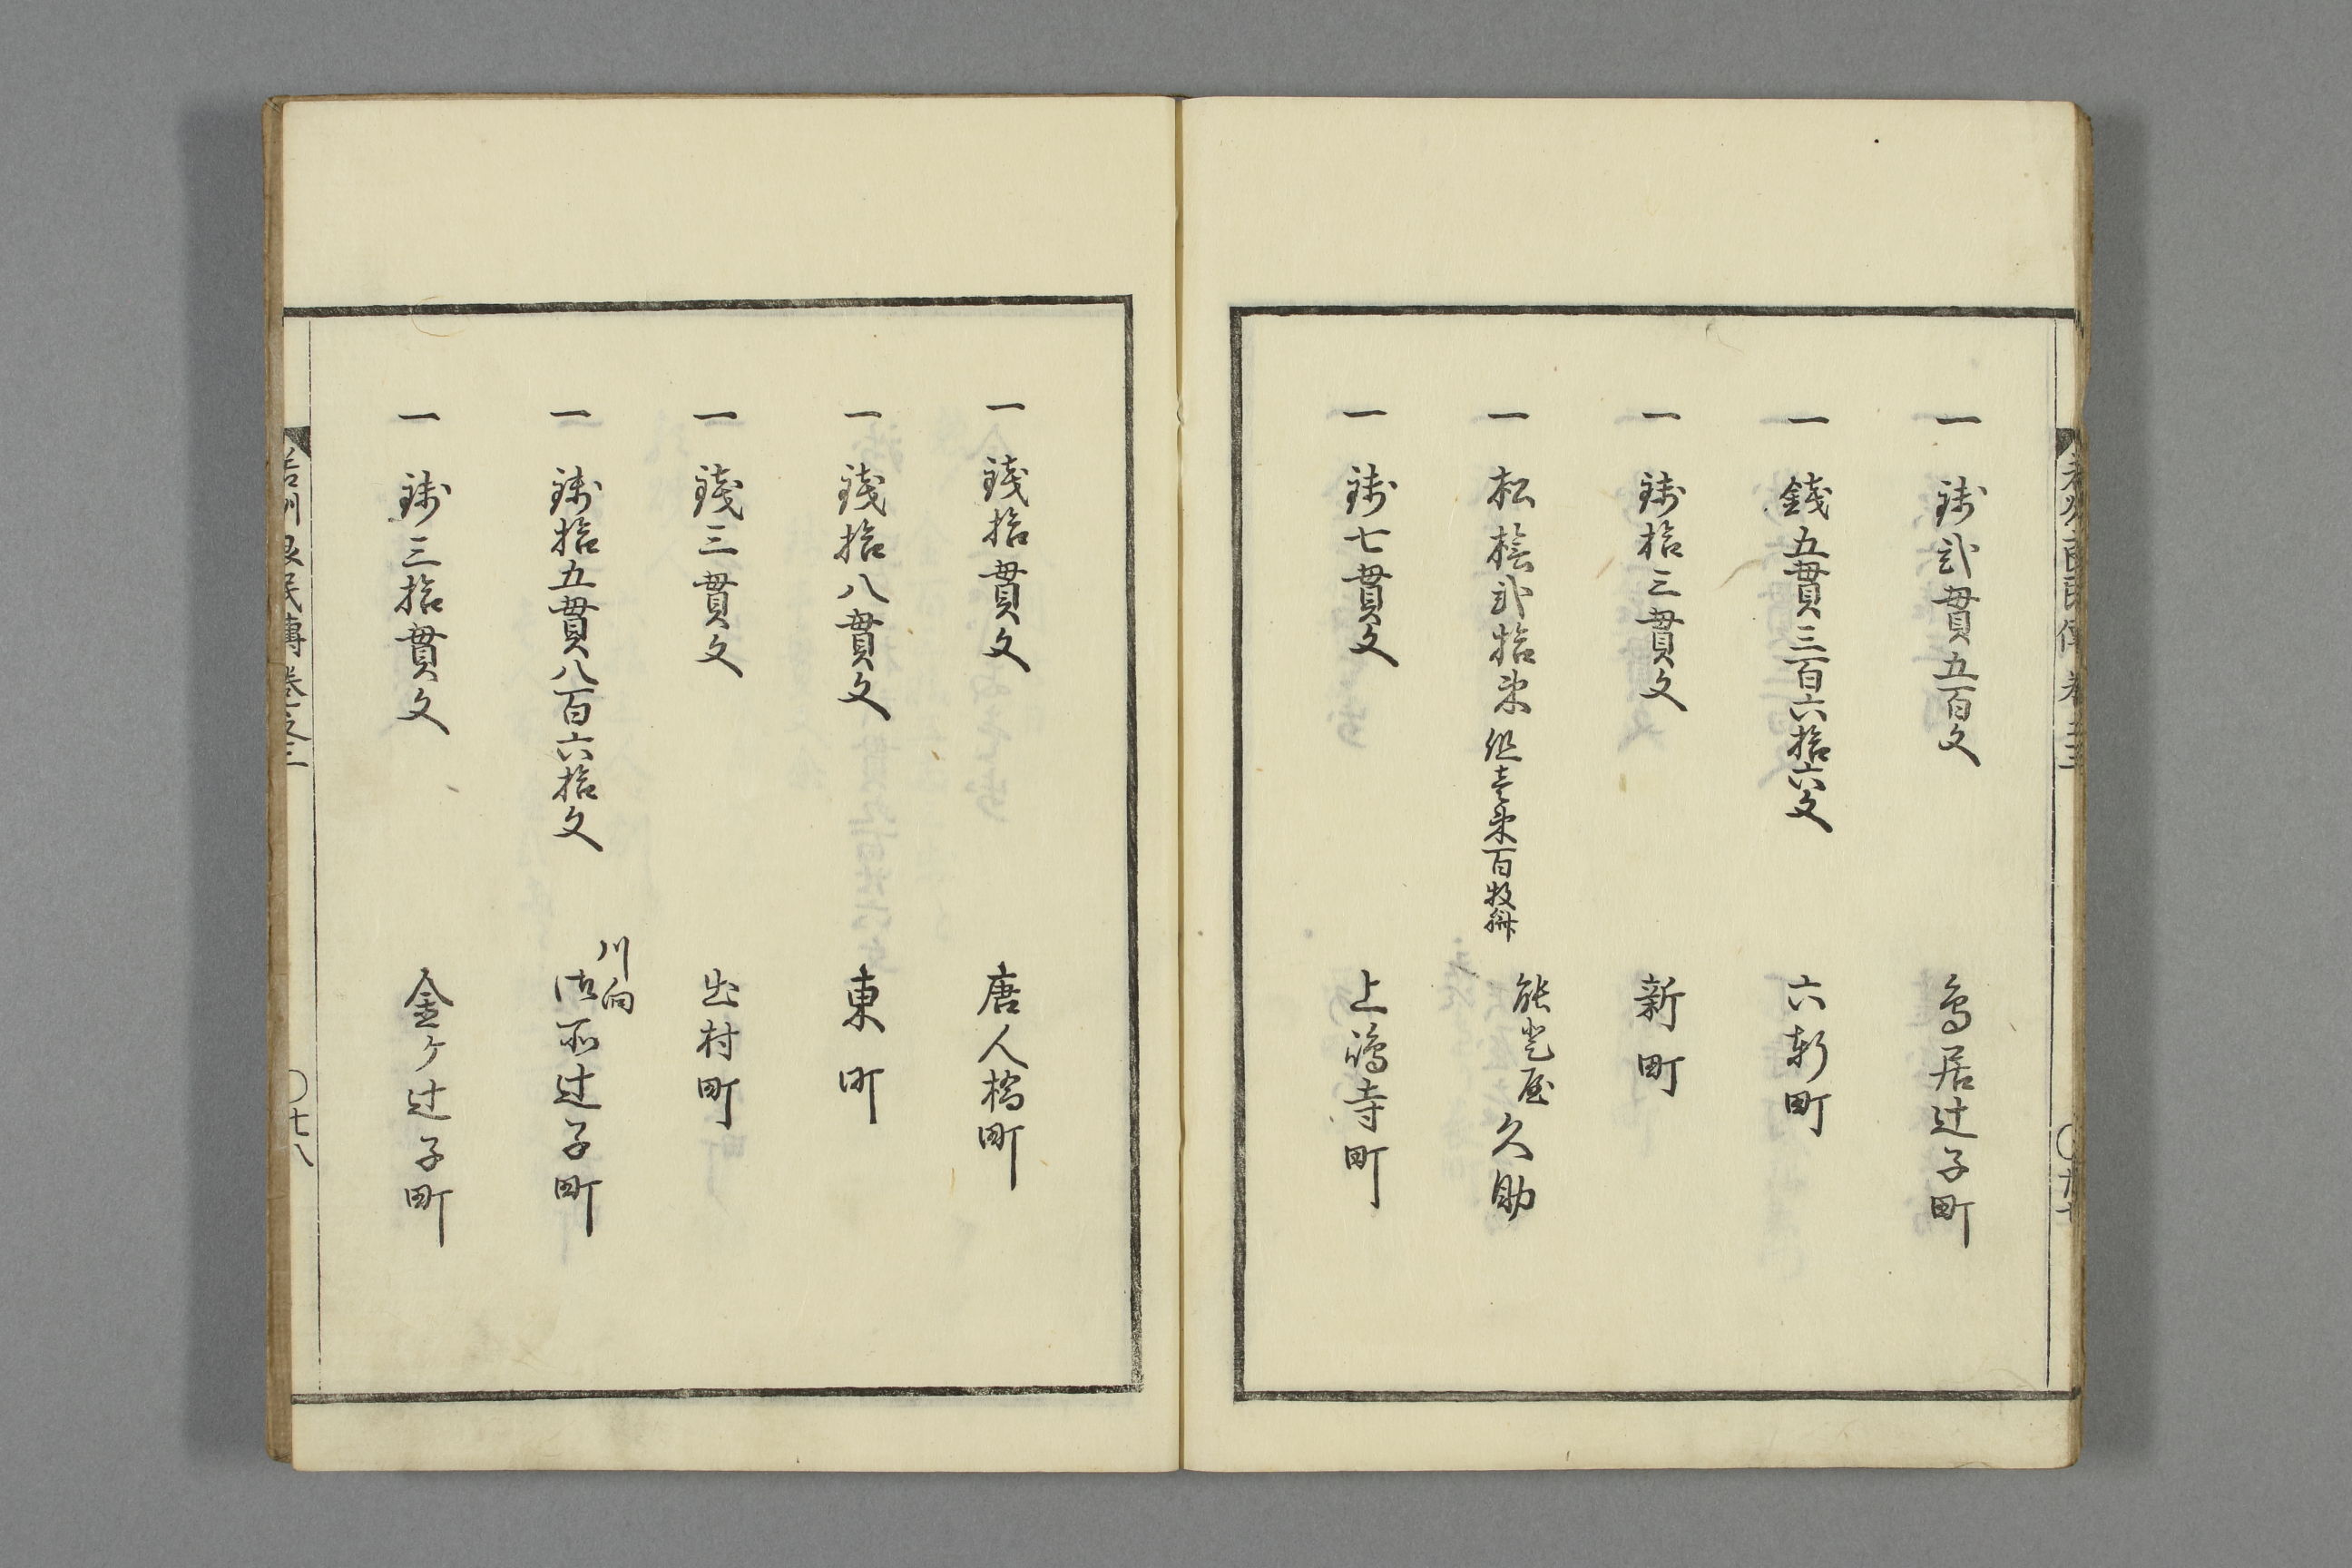 一 銭弐貫五百文 鳥居辻子町
一 銭五貫三百六拾六文 六軒町
一 銭拾三貫文 新町
一 松桧弐拾束 但壱束百枚 能登屋久助
一 銭七貫文 上鴻寺町
一 銭拾貫文 唐人橋町
一 銭拾八貫文 東町
一 銭三貫文 出村町
一 銭拾五貫八百六拾文 川向御所辻子町
一 銭三拾貫文 金ヶ辻子町
民傳巻之三
〇七八